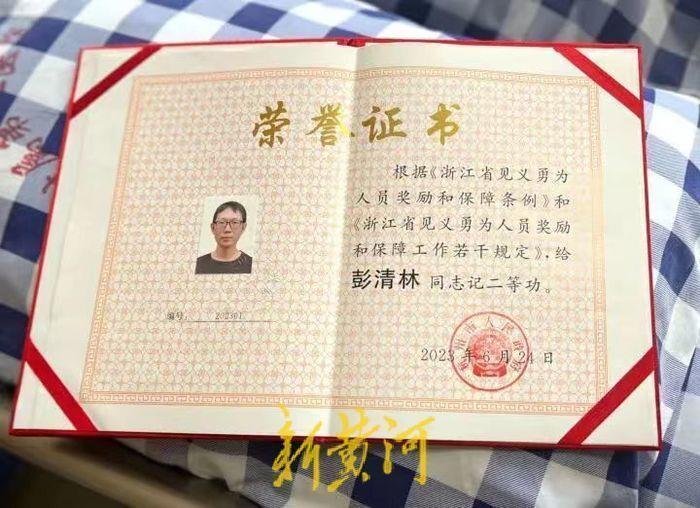 荣誉证书
根据《浙江省见义勇为
人员奖励和保障条例》和
《浙江省见义勇为人员奖励
和保障工作若干规定》,给
彭清林 同志记二等功。
编号: 202301
2023 年 6 月 24 日
杭州市人民政府
新黄河